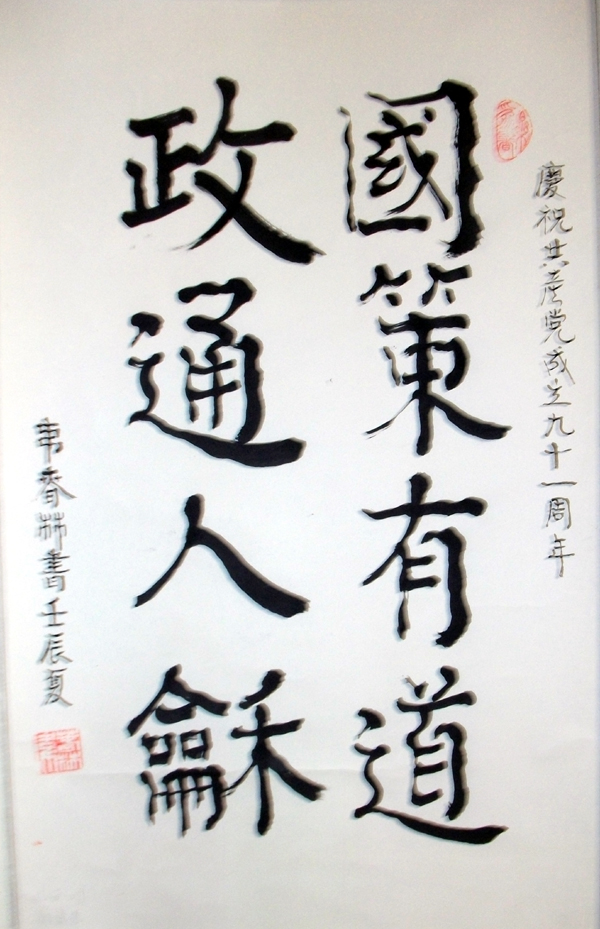 慶祝共產党成立九十一周年
國策有道
政通人龢
韦春林書壬辰夏